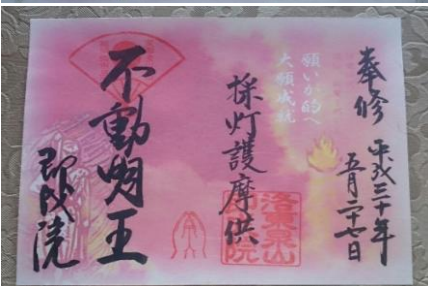 奉修
平成三十年
五月二十七日
願いが的へ
大願成就
採灯護摩供
不動明王
即成院
洛東泉山
即成院